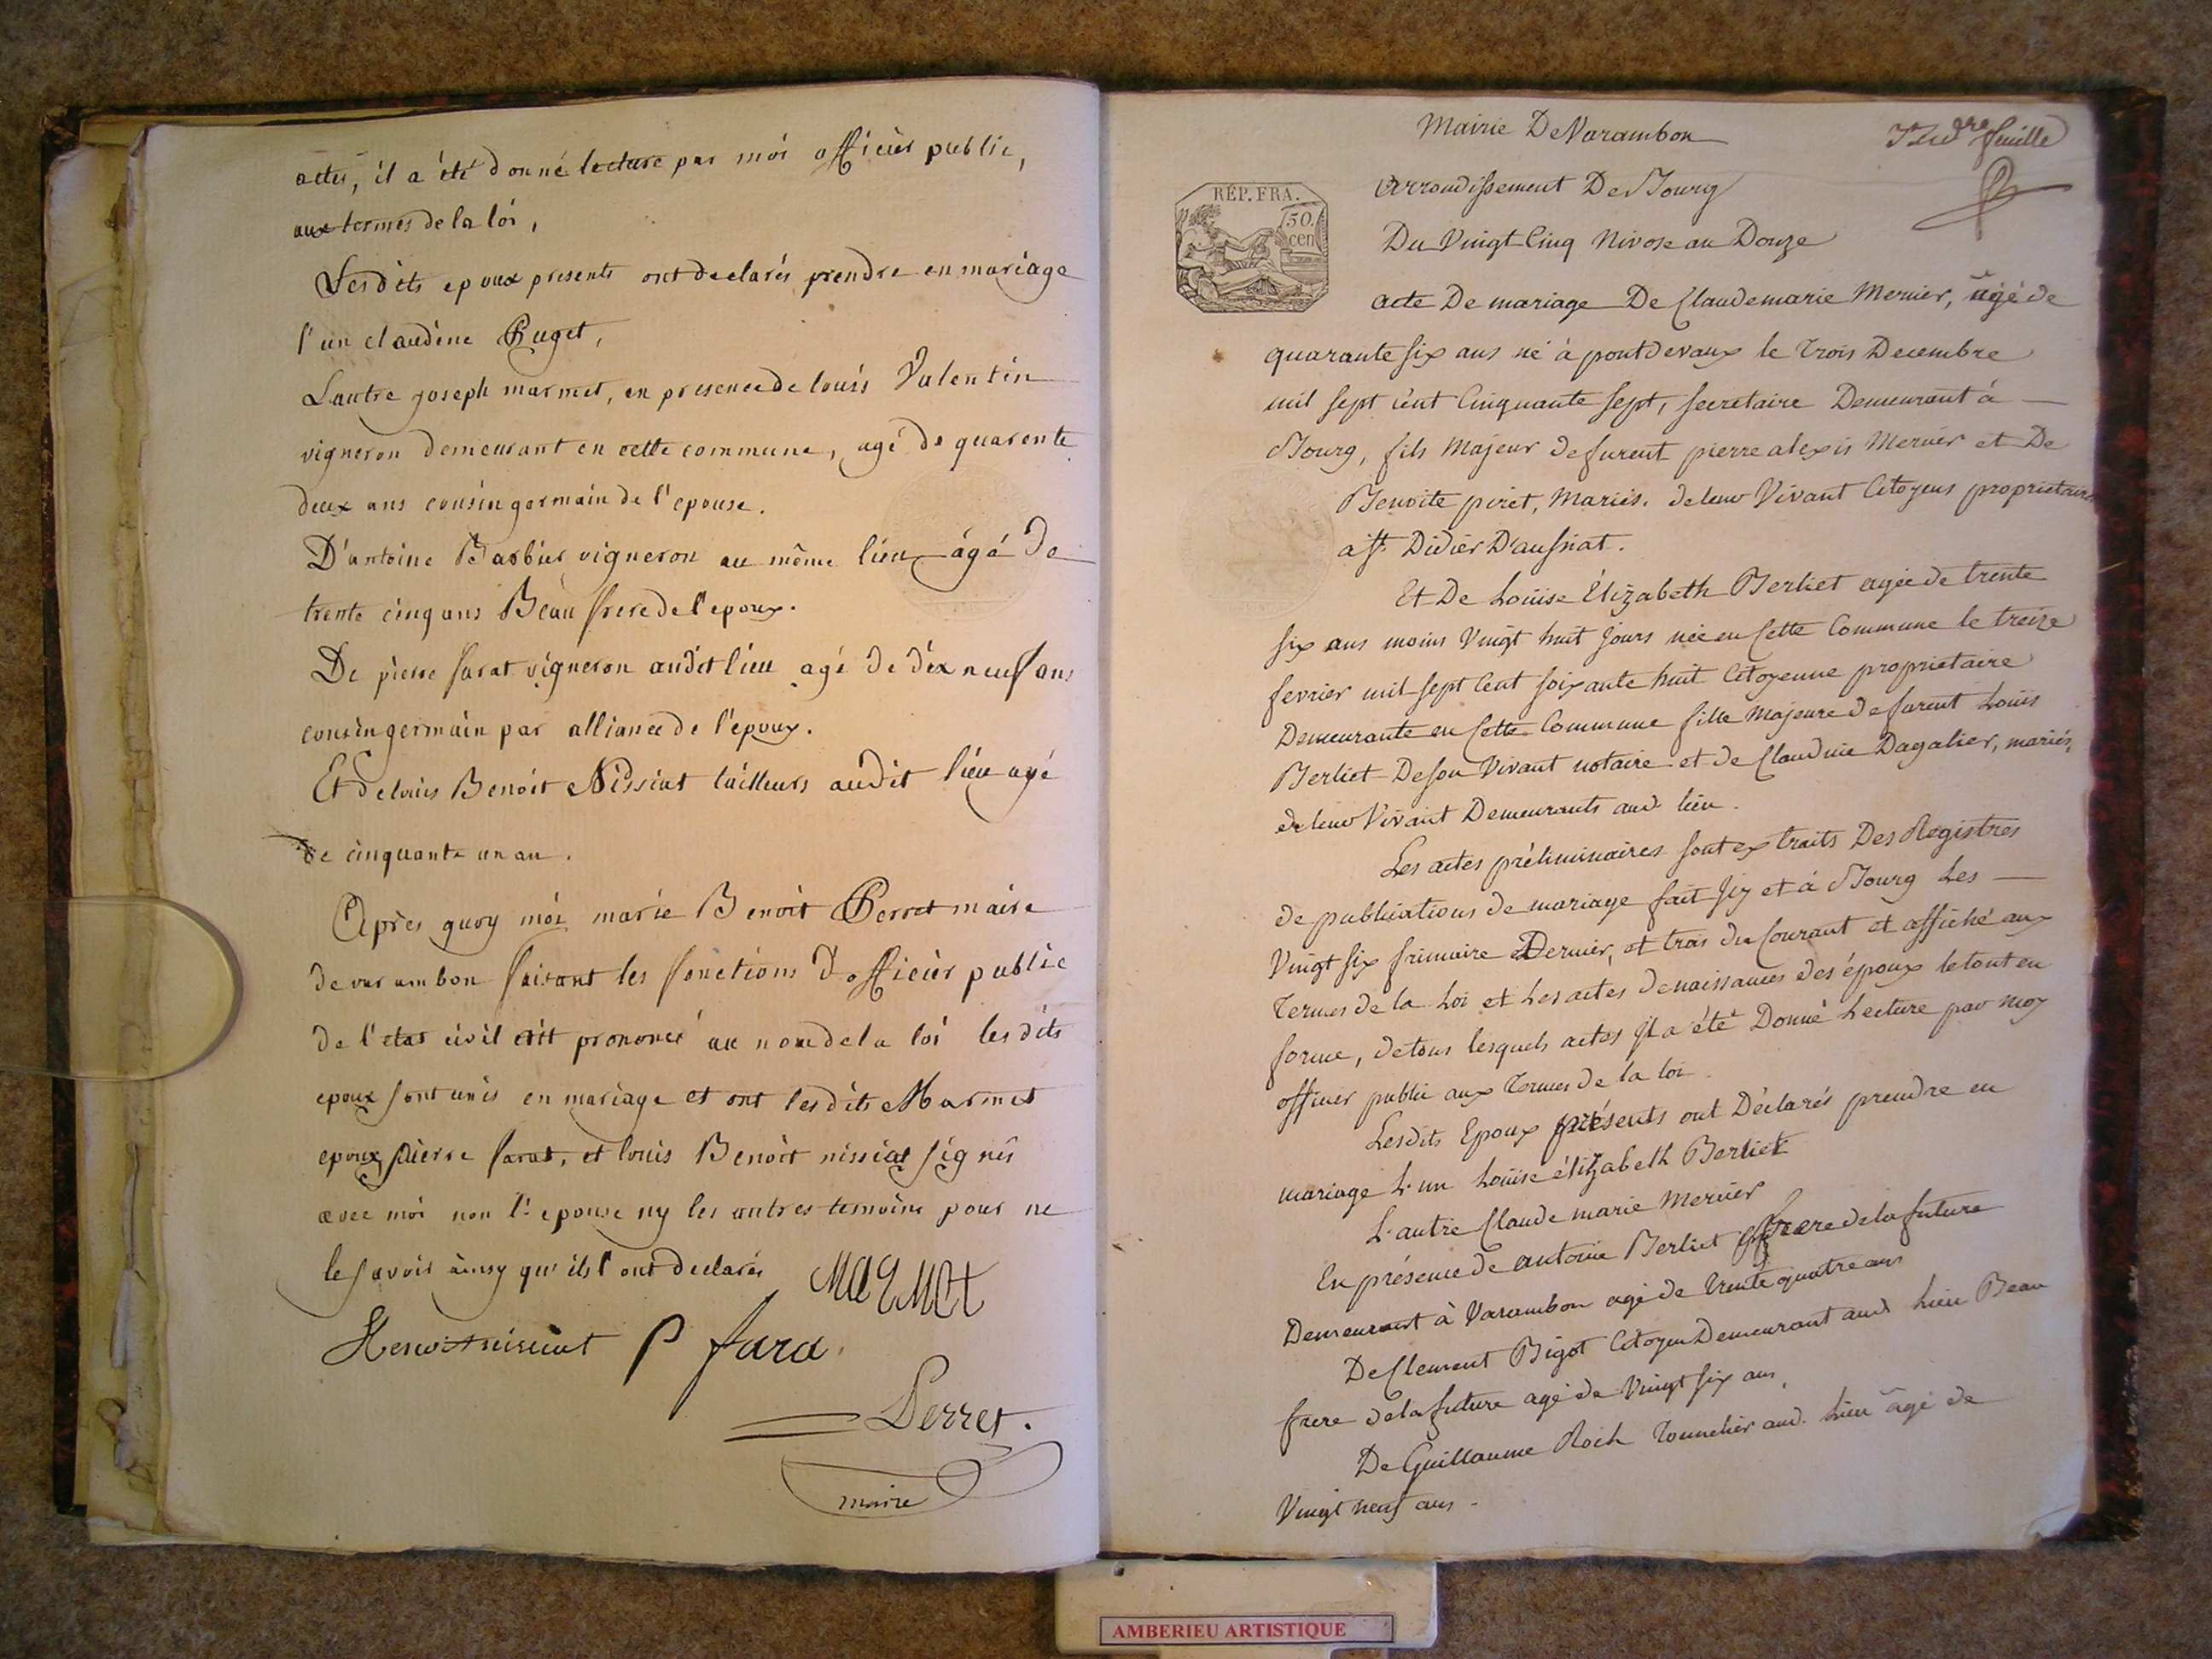 actes, il a été donné lecture par moi officier public,
aux termes de la loi,
Lesdits epoux presents ont declarés prendre en mariage
l'un claudine Puget,
Lautre joseph marmet, en presence de louis Valentin
vigneron demeurant en cette commune, agé de quarente
deux ans cousin germain de l'epouse.
D'antoine Barbier vigneron au même lieu agé de
trente cinq ans Beau frere de l'epoux.
De pierre farat vigneron audit lieu agé de dix neuf ans
cousin germain par alliance de l'epoux.
Et de louis Benoit Nissiat tailleurs audit lieu agé
de cinquante un an.
Après quoy moi marie Benoit Perret maire
de varambon faisant les fonctions d'officier public
de l'etat civil prononcé au nom de la loi les dits
epoux sont unis en mariage et ont lesdits Marmet
epoux pierre farat, et louis Benoit nissiat signés
avec moi non l'epouse ny les autres temoins pour ne
le savoir ainsy qu'ils l'ont declarés
MARMET
P fara.
Perret.
maire
Mairie De Varambon
feuille
RÉP. FRA.
50.
cen
Arrondissement De Bourg
Du Vingt Cinq Nivose an Douze
acte De mariage De Claudemarie Mernier, âgé de
quarante six ans né à pontdevaux le trois Decembre
mil sept cent Cinquante sept, secretaire Demeurant à
Bourg, fils Majeur defurent pierre alexis Mernier et De
Benoite piret, Mariés. de leur Vivant Citoyens proprietaires
a St. Didier D'aussiat.
Et De Louise Élizabeth Berliet agée de trente
six ans moins Vingt huit jours née en Cette Commune le treize
fevrier mil sept Cent soixante huit Citoyenne proprietaire
Demeurante en Cette Commune fille Majeure defurent Louis
Berliet De son Vivant notaire et de Claudine Dagalier, mariés,
de leur Vivant Demeurants aud. lieu.
Les actes préliminaires sont extraits Des Registres
de publications de mariage fait Jcy et à Bourg Les
Vingt six frimaire Dernier, et trois du Courant et affiché aux
Termes de la Loi et Les actes de naissances des époux le tout en
forme, de tous lesquels actes Jl a été Donné Lecture par moy
officier public aux Termes de la loi.
Lesdits Epoux présents ont Déclarés prendre en
mariage L'un Louise élizabeth Berliet
L'autre Claude marie Mernier
En présence de antoine Berliet frere de la future
Demeurant à Varambon agé de trente quatre ans
De Clement Bigot Citoyen Demeurant aud. Lieu Beau
frere de la future agé de Vingt six ans,
De Guillaume Roch Tonnelier aud. Lieu âgé de
Vingt neuf ans.
AMBERIEU ARTISTIQUE